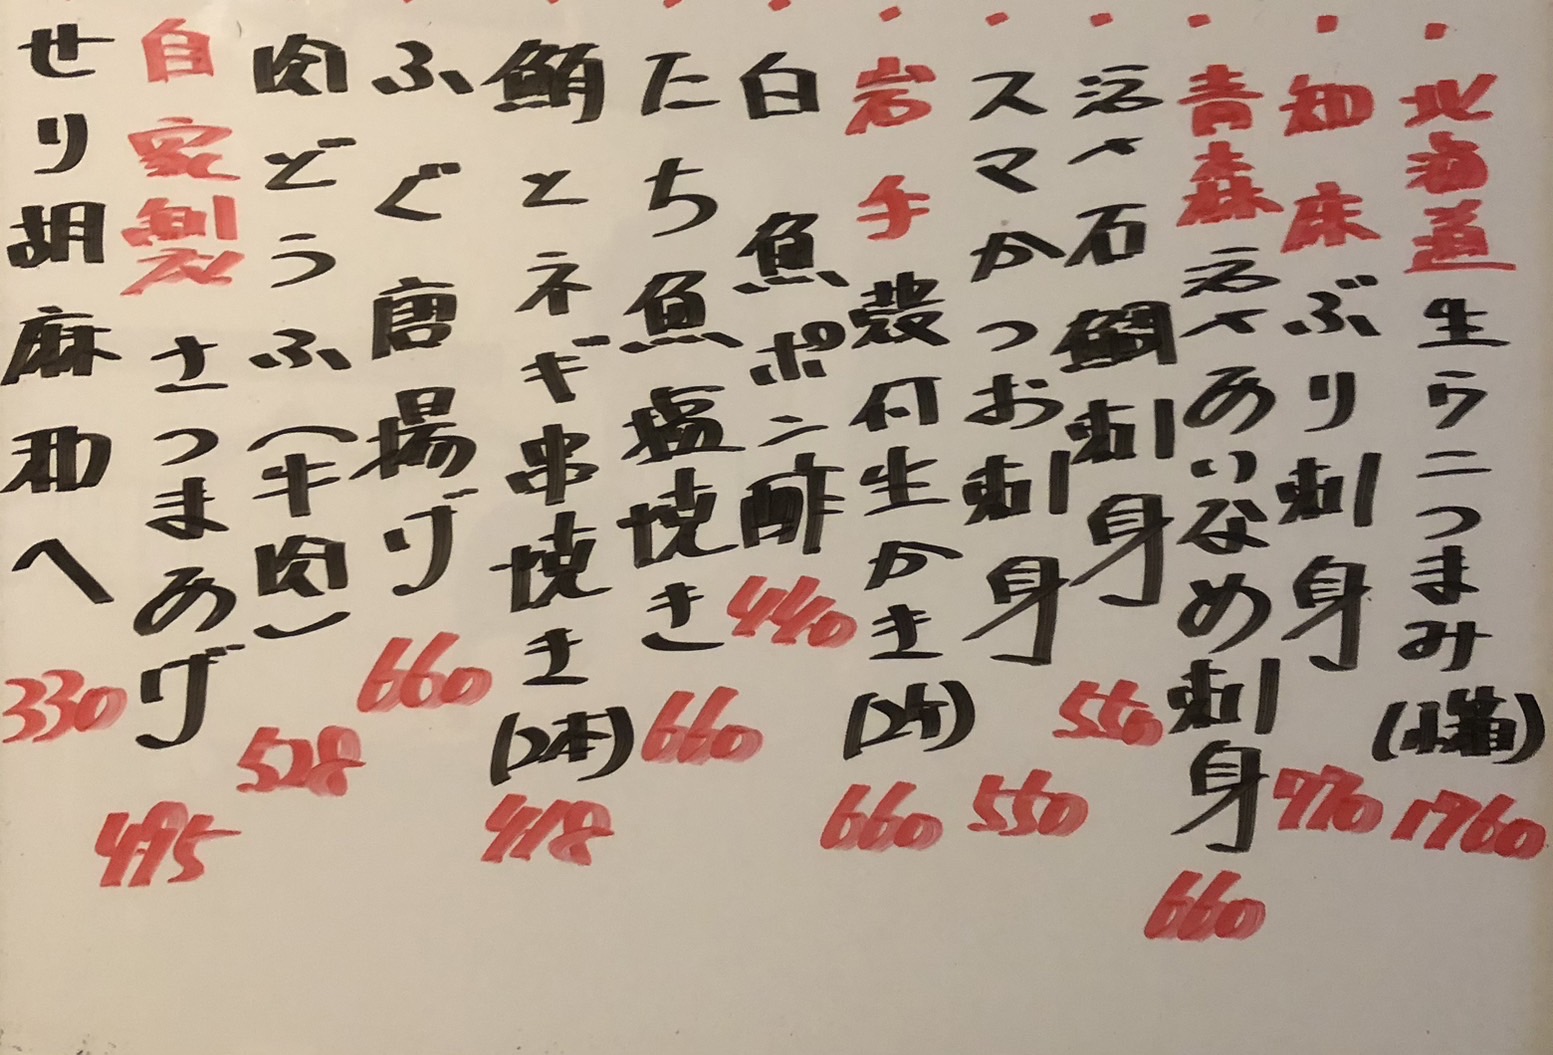 北海道生ウニつまみ(小箱)1760
知床ぶり刺身770
青森活〆あいなめ刺身660
活〆石鯛刺身550
スマかつお刺身550
岩手殻付生かき(2ケ)660
白魚ポン酢440
たち魚塩焼き660
鮪とネギ串焼き(2本)418
ふぐ唐揚げ660
肉どうふ(牛肉)528
自家製さつまあげ495
せり胡麻和へ330